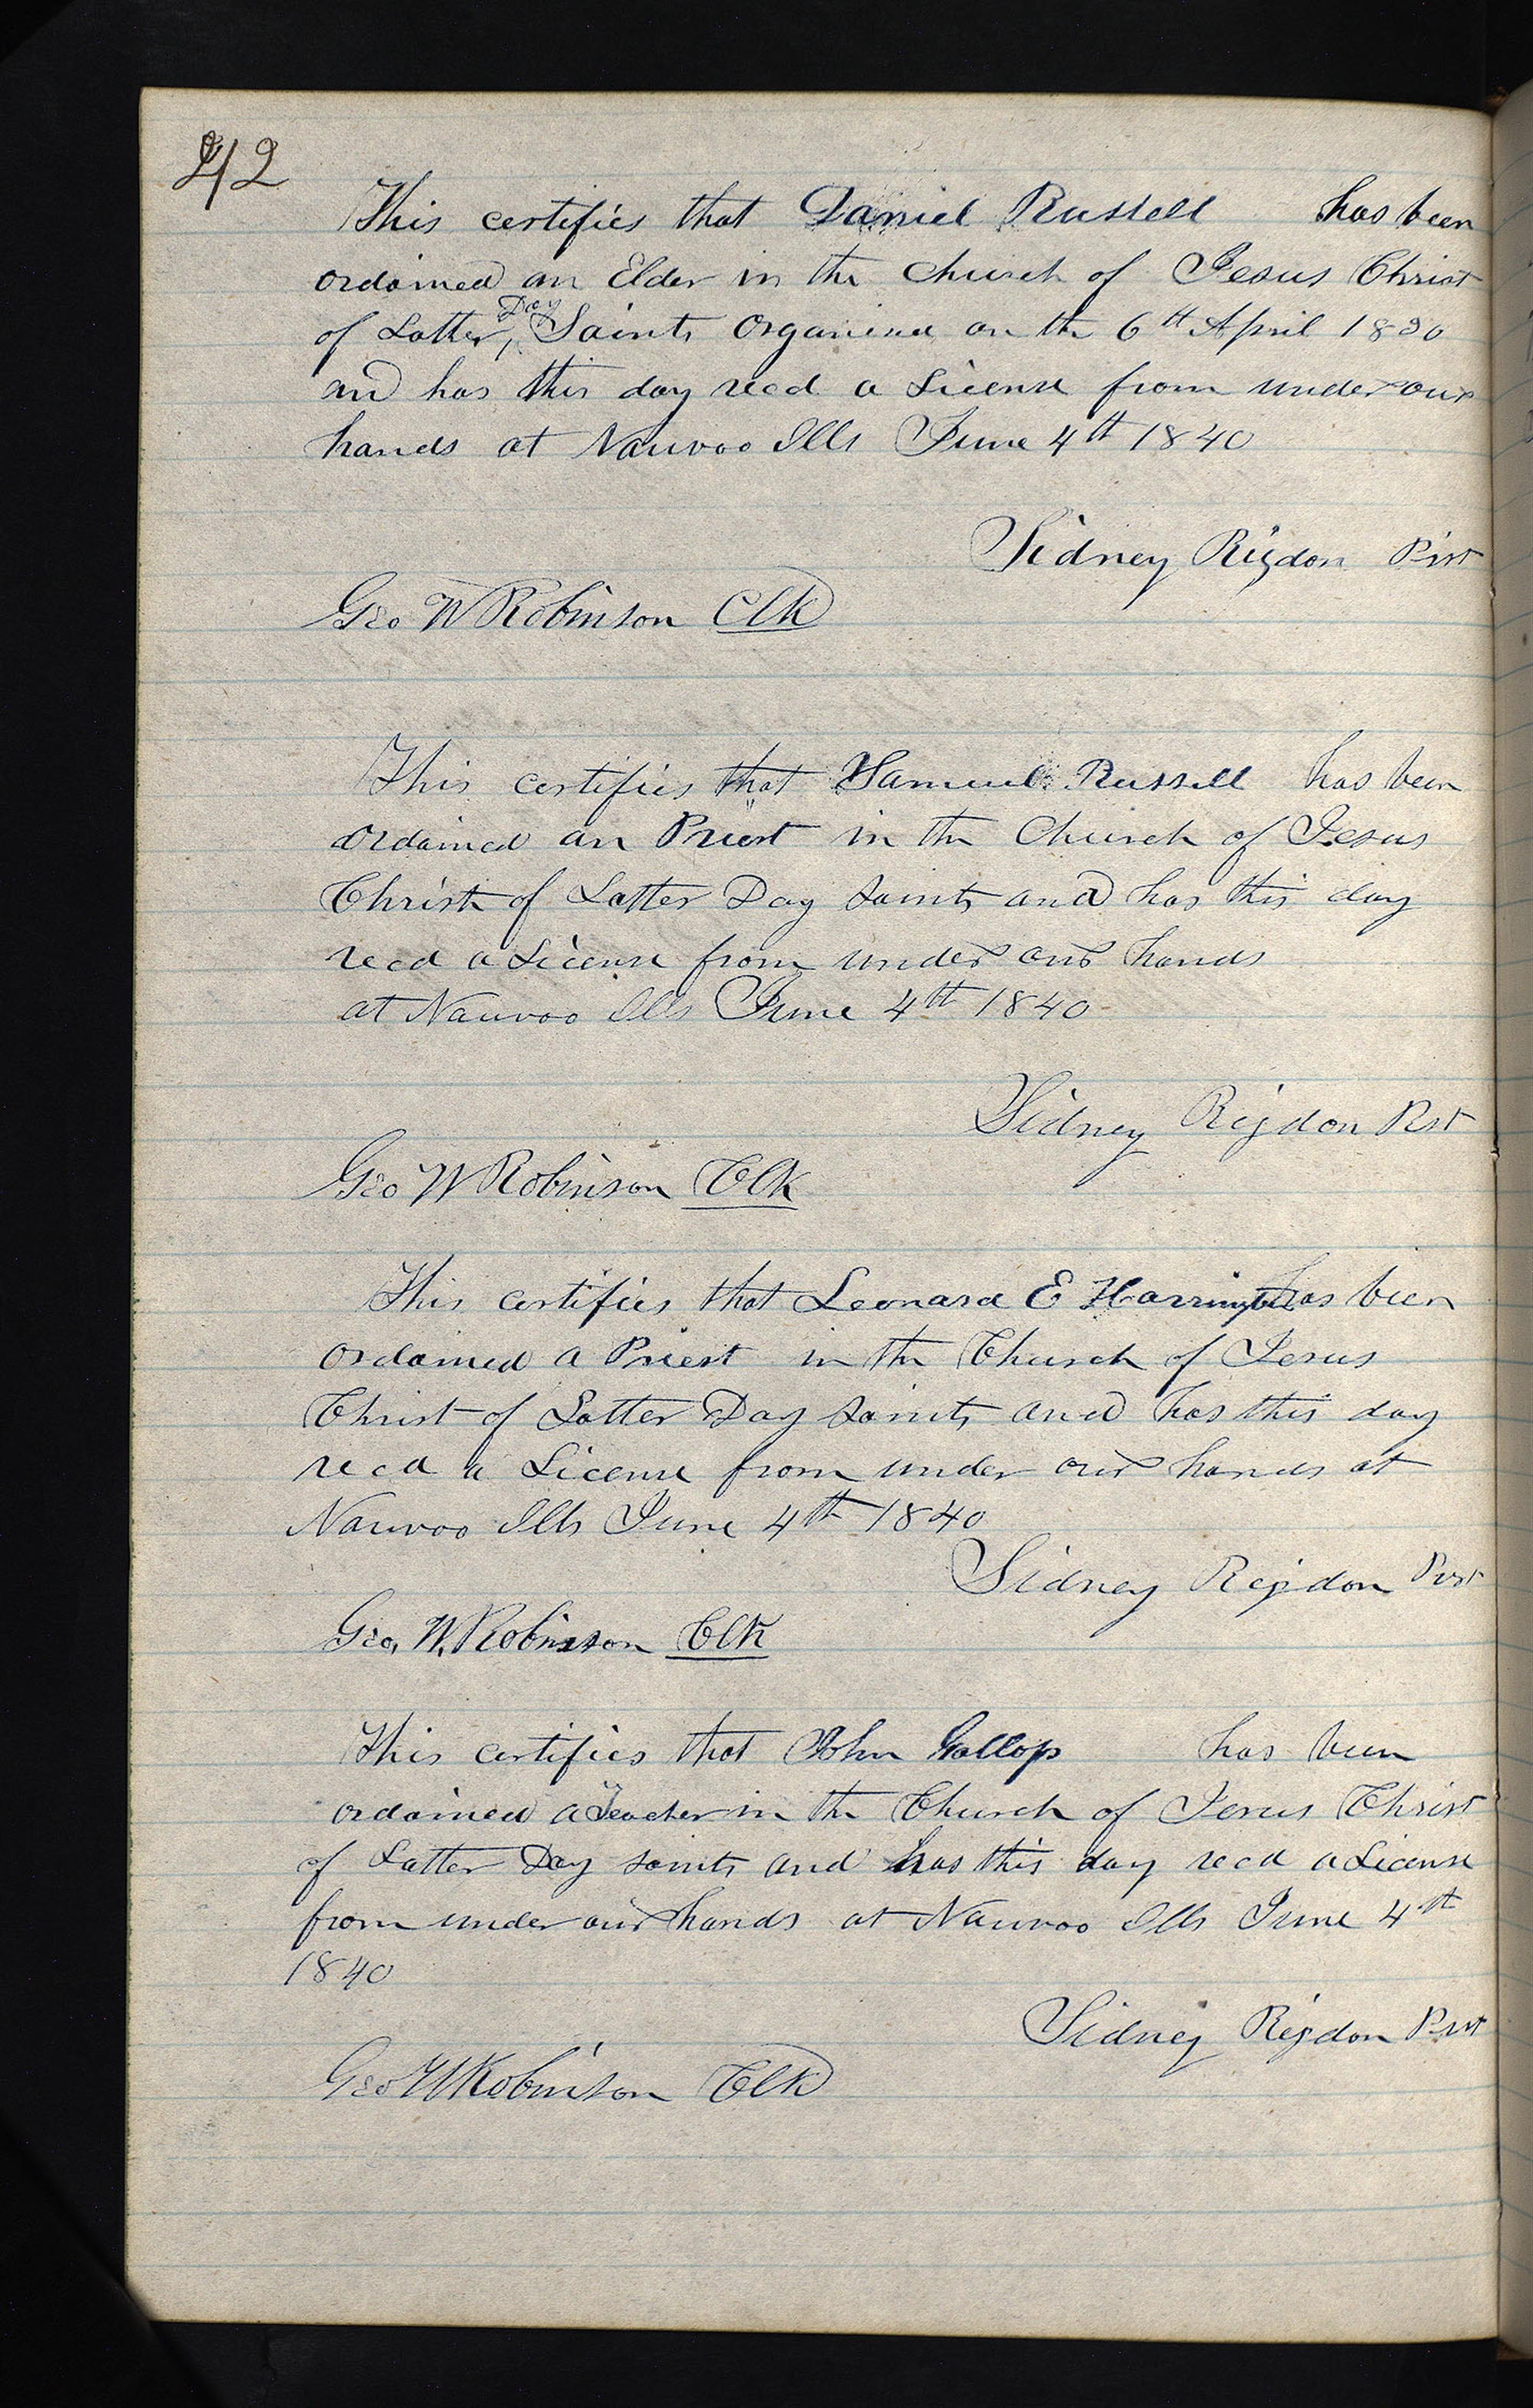 42
This certifies that Daniel Russell has been
ordained an Elder in the Church of Jesus Christ
of Latter Day Saints Organized on the 6th April 1830
and has this day recd a License from under our
hands at Nauvoo Ills June 4th 1840
Sidney Rigdon Prst
Geo W Robinson Clk
This certifies that Samuel Russell has been
ordained an Priest in the Church of Jesus
Christ of Latter Day Saints and has this day
recd a License from under our hands
at Nauvoo Ills June 4th 1840
Sidney Rigdon Prst
Geo W Robinson Clk
This certifies that Leonard E Harrington has been
ordained a Priest in the Church of Jesus
Christ of Latter Day Saints and has this day
recd a License from under our hands at
Nauvoo Ills June 4th 1840
Sidney Rigdon Prst
Geo, W. Robinson Clk
This certifies that John Gallop has been
ordained a Teacher in the Church of Jesus Christ
of Latter Day Saints and has this day recd a License
from under our hands at Nauvoo Ills June 4th
1840
Sidney Rigdon Prst
Geo W Robinson Clk